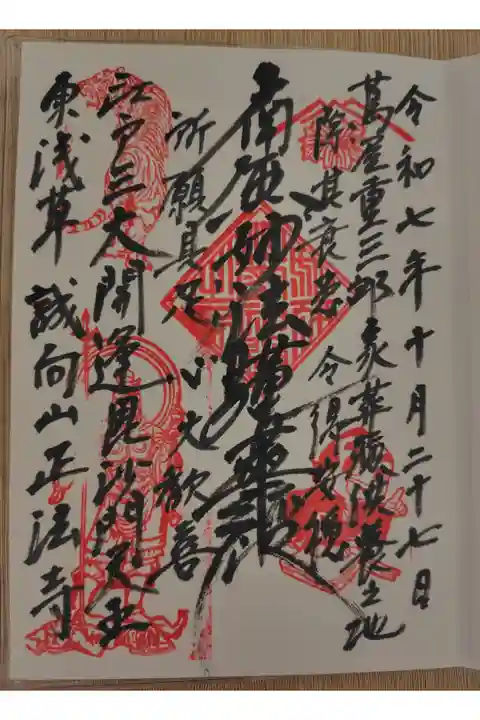 令和七年十月二十七日
蔦屋重三郎永葬碑改葬之地
除其衰患 令得安穏
南無妙法蓮華経
所願具足 心大歓喜
江戸三大開運毘沙門天王
東浅草 誠向山正法寺